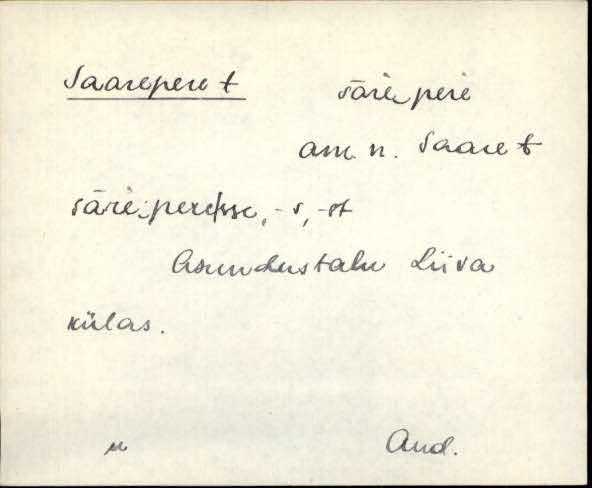 Saarepere t
sāre͕pere
am. n. Saare t
sāre͕peresse, -s, -st
Asundustalu Liiva
külas.
And.